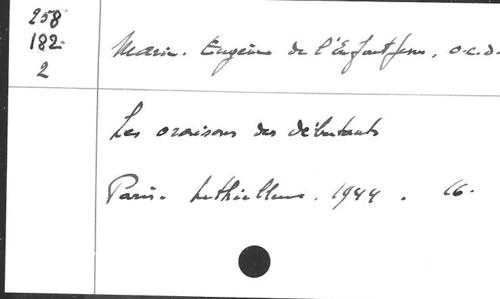 258
182
2
Marie-Eugène de l'Enfant Jésus, o.c.d.
Les oraisons des débutants
Paris. Lethielleux. 1944. 16.